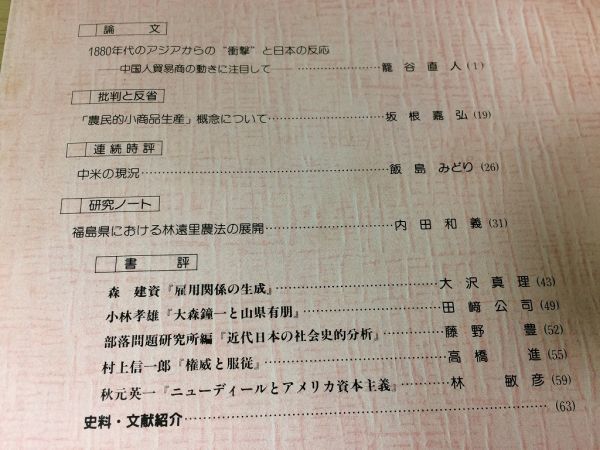 論文
1880年代のアジアからの“衝撃”と日本の反応
――中国人貿易商の動きに注目して――…………籠谷直人(1)
批判と反省
「農民的小商品生産」概念について…………坂根嘉弘(19)
連続時評
中米の現況…………飯島みどり(26)
研究ノート
福島県における林遠里農法の展開…………内田和義(31)
書評
森建資『雇用関係の生成』…………大沢真理(43)
小林孝雄『大森鐘一と山県有朋』…………田﨑公司(49)
部落問題研究所編『近代日本の社会史的分析』…………藤野豊(52)
村上信一郎『権威と服従』…………高橋進(55)
秋元英一『ニューディールとアメリカ資本主義』…………林敏彦(59)
史料・文献紹介…………(63)